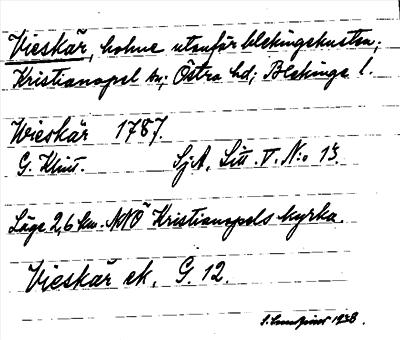 Vieskär, holme utanför blekingekusten;
Kristianopel sn; Östra hd; Blekinge l.
Wieskär 1787.
G. Klint. SjA, Litt. V. N:o 15.
Läge 2,6 km. NNÖ Kristianopels kyrka.
Vieskär ek. G. 12.
1938.